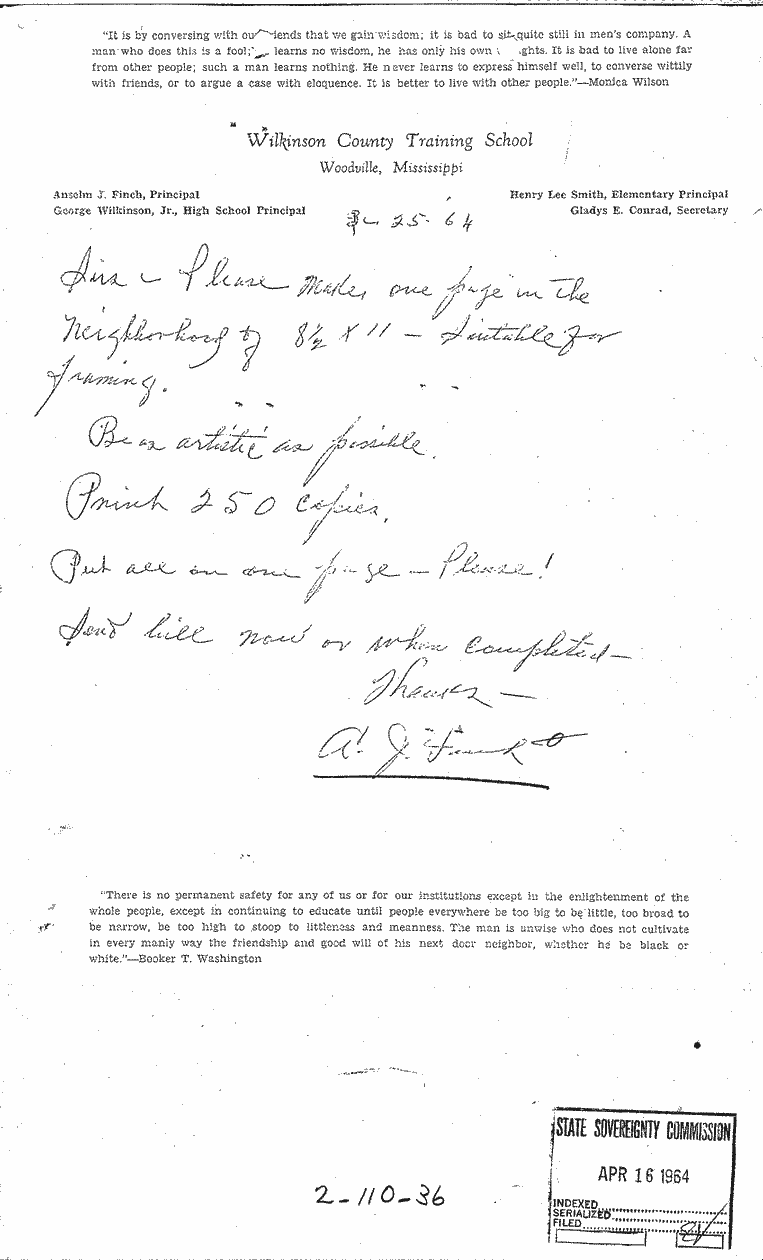 "It is by conversing with our friends that we gain wisdom; it is bad to sit quite still in men's company. A
man who does this is a fool; learns no wisdom, he has only his own ghts. It is bad to live alone far
from other people; such a man learns nothing. He never learns to express himself well, to converse wittily
with friends, or to argue a case with eloquence. It is better to live with other people."—Monica Wilson
Wilkinson County Training School
Woodville, Mississippi
Anselm J. Finch, Principal
Henry Lee Smith, Elementary Principal
George Wilkinson, Jr., High School Principal
Gladys E. Conrad, Secretary
25- 64
Sirs - Please make, one page in the
neighborhood of 8½ X 11 - Suitable for
framing.
Be as artistic as possible.
Print 250 copies.
Put all on one page - Please!
Send bill now or when completed -
Thanks -
A. J. Finch
"There is no permanent safety for any of us or for our institutions except in the enlightenment of the
whole people, except in continuing to educate until people everywhere be too big to be little, too broad to
be narrow, be too high to stoop to littleness and meanness. The man is unwise who does not cultivate
in every manly way the friendship and good will of his next door neighbor, whether he be black or
white."—Booker T. Washington
STATE SOVEREIGNTY COMMISSION
APR 16 1964
INDEXED
SERIALIZED
FILED
2-110-36